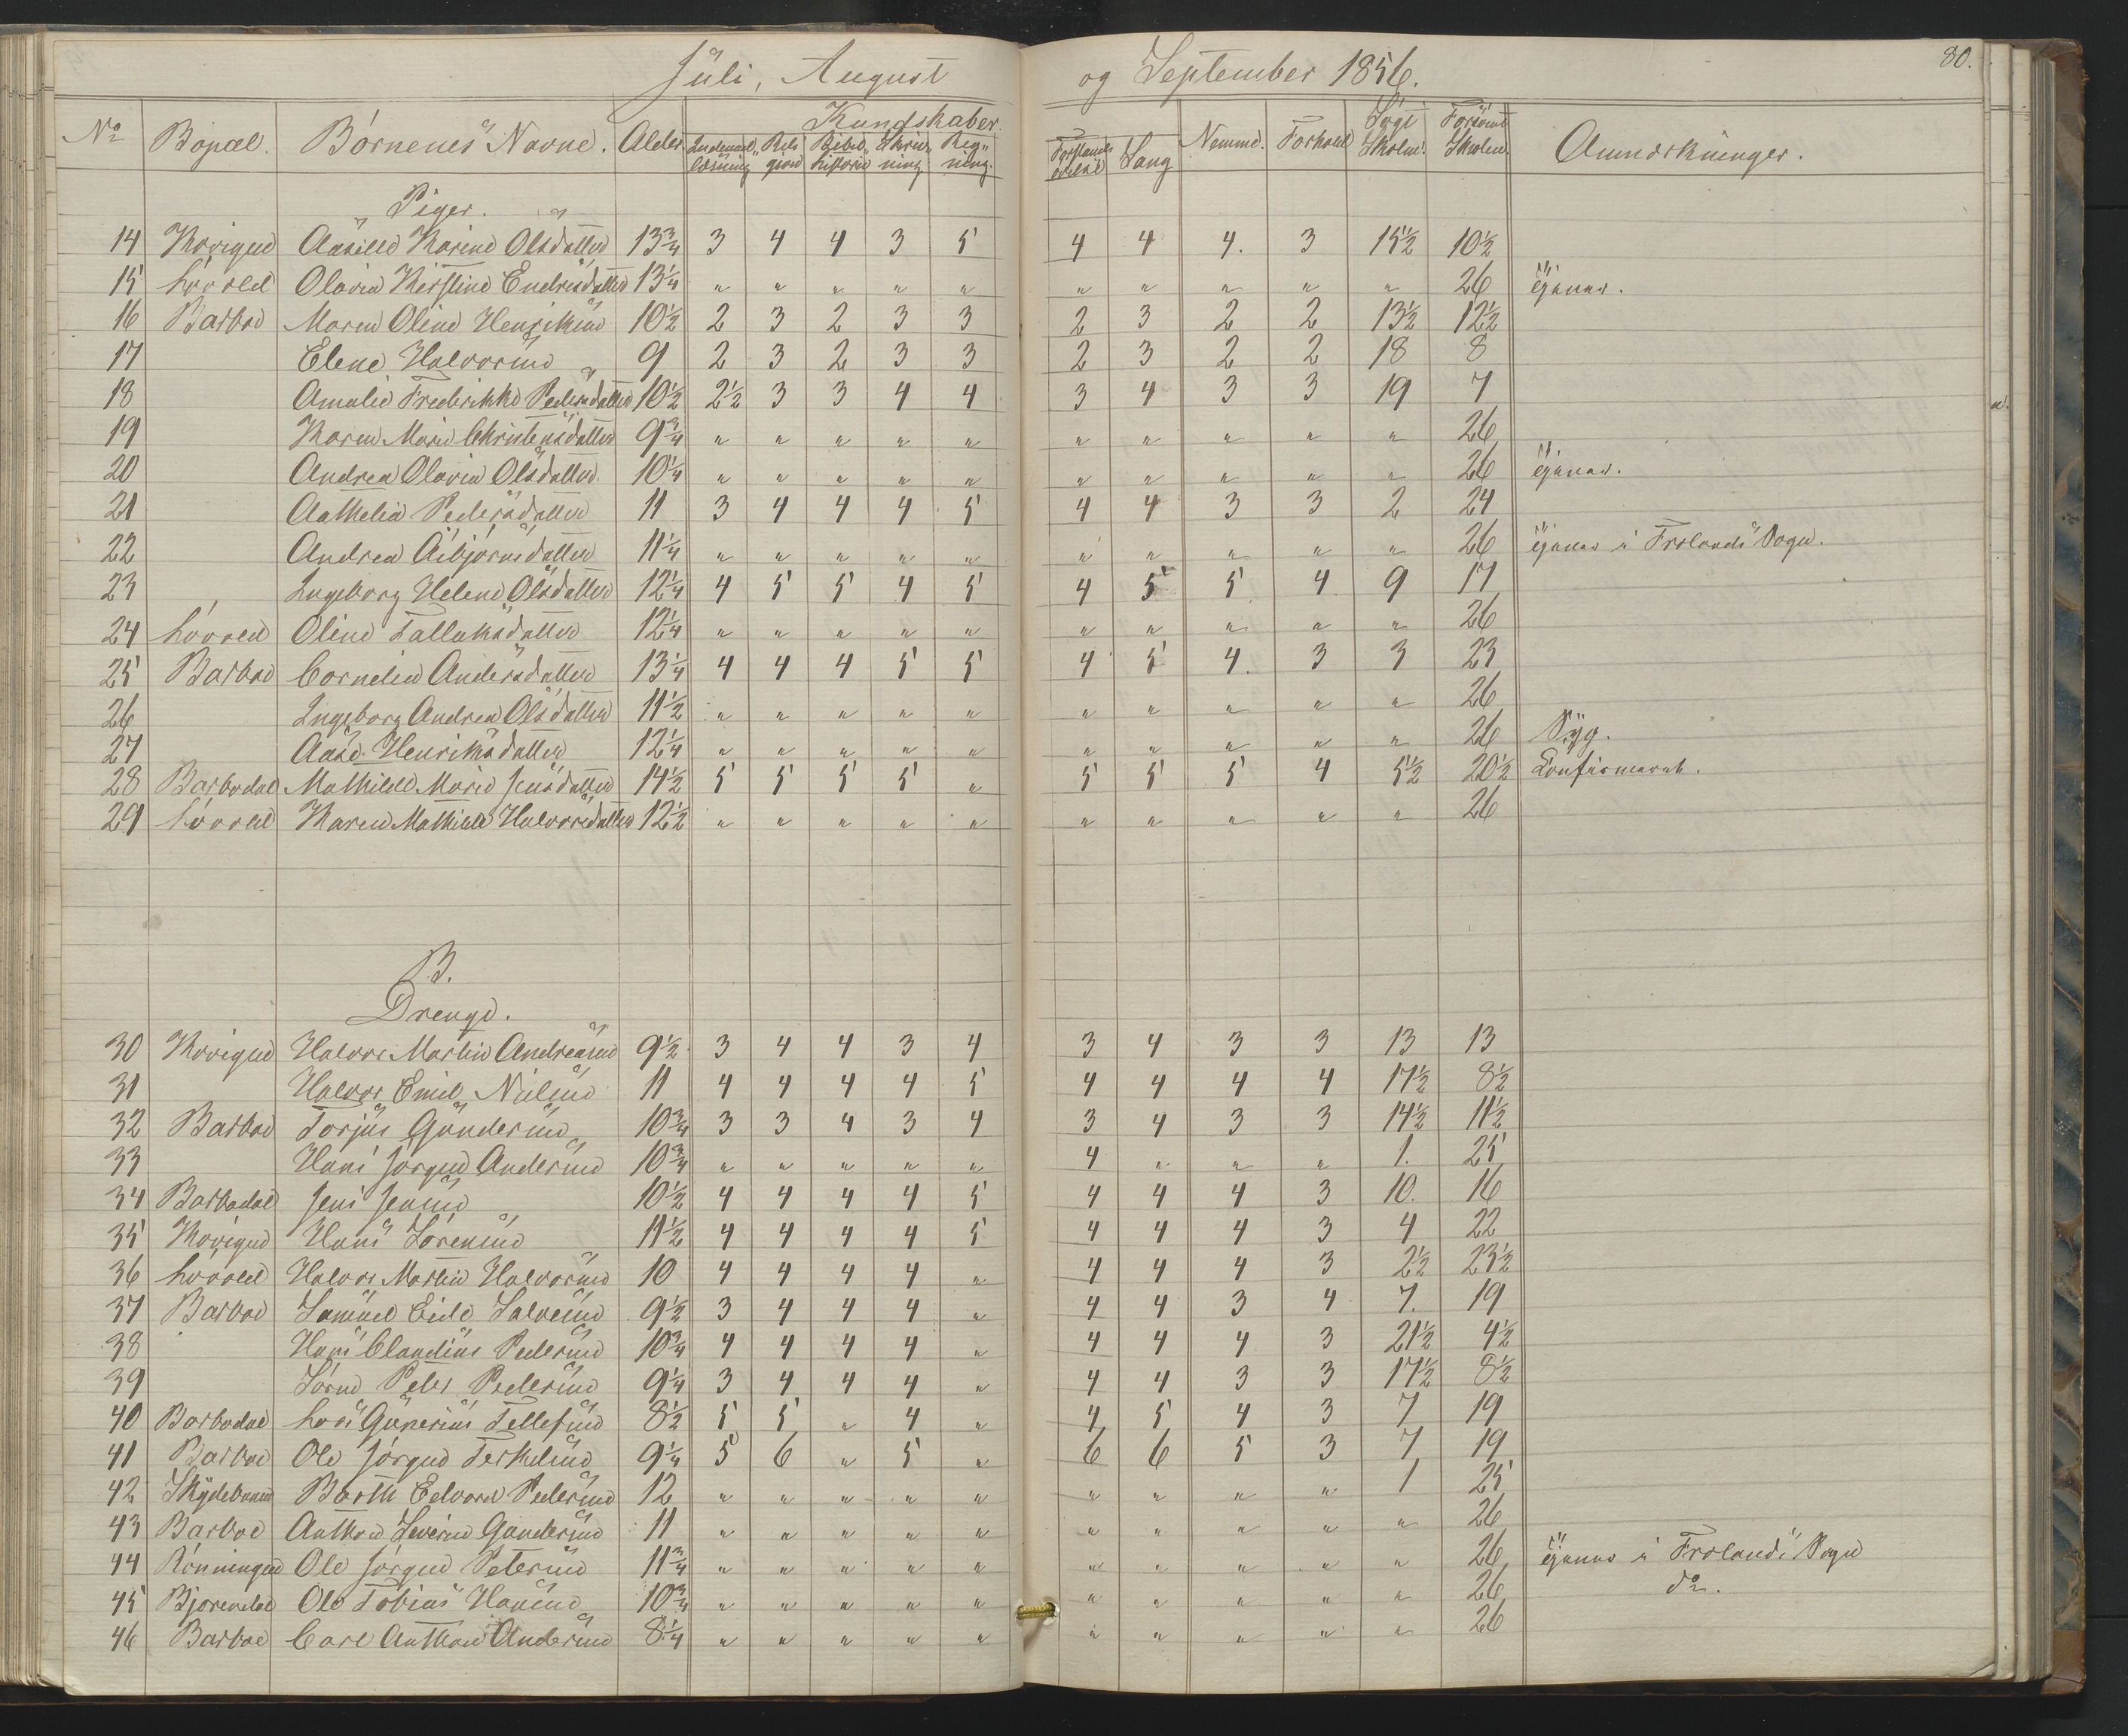 Juli, August og September 1856. 80.
No Bopæl. Børnenes Navne. Alder Kundskaber. Nemme. Forhold Søgt Skolen. Forsømt Skolen. Anmærkninger.
Indenadlæsning Religion Bibelhistorie Skrivning Regning. Forstandsøvelse Sang
Piger.
14 Kovigen Aasille Karine Olsdatter 13 3/4 3 4 4 3 5 4 4 4. 3 15 1/2 10 1/2
15 Olavia Kirstine Endresdatter 13 1/4 " " " " " " " " " " 26 tjener.
16 Barboe Maren Oline Henriksen 10 1/2 2 3 2 3 3 2 3 2 2 13 1/2 12 1/2
17 Elene Halvorsen 9 2 3 2 3 3 2 3 2 2 18 8
18 Amalie Frederikke Pedersdatter 10 1/2 2 1/2 3 3 4 4 3 4 3 3 19 7
19 Karen Marie Christensdatter 9 3/4 " " " " " " " " " " 26
20 Andrea Olavia Olsdatter 10 1/4 " " " " " " " " " " 26 tjener.
21 Anthelia Pedersdatter 11 3 4 4 4 5 4 4 3 3 2 24
22 Andrea Asbjørnsdatter 11 1/4 " " " " " " " " " " 26 tjener i Frolands Sogn.
23 Ingeborg Helene Olsdatter 12 1/4 4 5 5 4 5 4 5 5 4 9 17
24 Oline Tallaksdatter 12 1/4 " " " " " " " " " " 26
25 Barboe Cornelia Andersdatter 13 1/4 4 4 4 5 5 4 5 4. 3 3 23
26 Ingeborg Andrea Olsdatter 11 1/2 " " " " " " " " " " 26
27 Aase Henriksdatter 12 1/4 " " " " " " " " " " 26 Syg.
28 Barbodal Mathilde Marie Jensdatter 14 1/2 5 5 5 5 " 5 5 5 4 5 1/2 20 1/2 Confirmeret.
29 Karen Mathilde Halvorsdatter 12 1/2 " " " " " " " " " " 26
B.
Drenge.
30 Kovigen Halvor Martin Andreasen 9 1/2 3 4 4 3 4 3 4 3 3 13 13
31 Halvor Emil Nielsen 11 4 4 4 4 5 4 4 4 4 17 1/2 8 1/2
32 Barboe Torjus Gundersen 10 3/4 3 3 4 3 4 3 4 3 3 14 1/2 11 1/2
33 Hans Jørgen Andersen 10 3/4 " " " " " 4 " " " 1. 25
34 Barbodal Jens Jensen 10 1/2 4 4 4 4 5 4 4 4 3 10. 16
35 Kovigen Hans Sørensen 11 1/2 4 4 4 4 5 4 4 4 3 4 22
36 Halvor Martin Halvorsen 10 4 4 4 4 " 4 4 4 3 2 1/2 23 1/2
37 Barboe Samuel Eide Salvesen 9 1/2 3 4 4 4 " 4 4 3 4 7. 19
38 Hans Claudius Pedersen 10 3/4 4 4 4 4 " 4 4 4 3 21 1/2 4 1/2
39 Søren Peter Pedersen 9 1/4 3 4 4 4 " 4 4 3 3 17 1/2 8 1/2
40 Barbodal Lars Tellefsen 8 1/2 5 5 " 4 " 4 5 4 3 7 19
41 Barboe Ole Jørgen Terkelsen 9 1/4 5 6 " 5 " 6 6 5 3 7 19
42 Skydebanen Barth Edvard Pedersen 12 " " " " " " " " " 1 25
43 Barboe Anthon Severin Gundersen 11 " " " " " " " " " " 26
44 Rønningen Ole Jørgen Petersen 11 3/4 " " " " " " " " " " 26 tjener i Frolands Sogn
45 Bjorendal Ole Tobias Hansen 10 3/4 " " " " " " " " " " 26 do.
46 Barboe Carl Anthon Andersen 8 1/4 " " " " " " " " " " 26